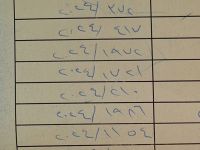 ٢٠٢٤/٣٧٢
٢٠٢٤/٤١٧
٢٠٢٤/١٩٧٢
٢٠٢٤/١٧٢١
٢٠٢٤/٢١٠
٢٠٢٤/١٩٨٦
٢٠٢٤/١١٥٤